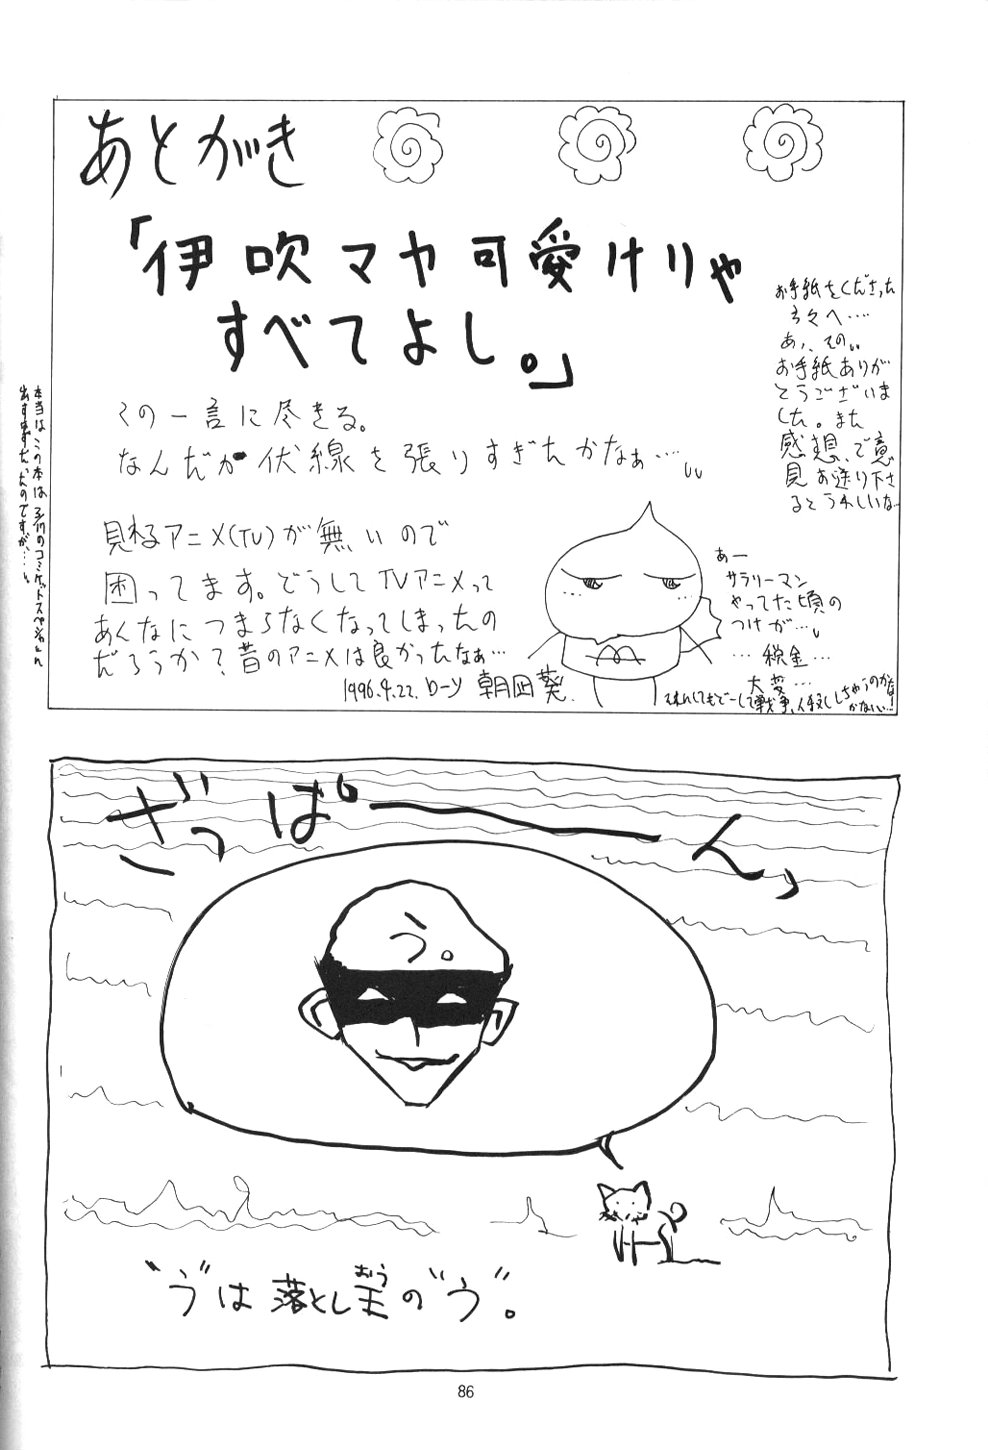 あとがき
「伊吹マヤ可愛けりゃ
すべてよし。」
この一言に尽きる。
なんだか伏線を張りすぎたかなぁ…
見れるアニメ(TV)が無いので
困ってます。どうしてTVアニメって
あんなにつまらなくなってしまったの
だろうか?昔のアニメは良かったなぁ…
1996.4.22. ローソ 朝凪葵.
お手紙をくださった
方々へ…
あ、、その、、
お手紙ありが
とうございま
した。また
感想、ご意
見お送り下さ
るとうれしいな
あー
サラリーマン
やってた頃の
つけが…
…税金…
大変…
本当はこの本は3/17のコミケットスペシャルに
出すはずだったのですが…
ざっぱーーん」
う。
"う"は落とし王の"う"。
おう
86